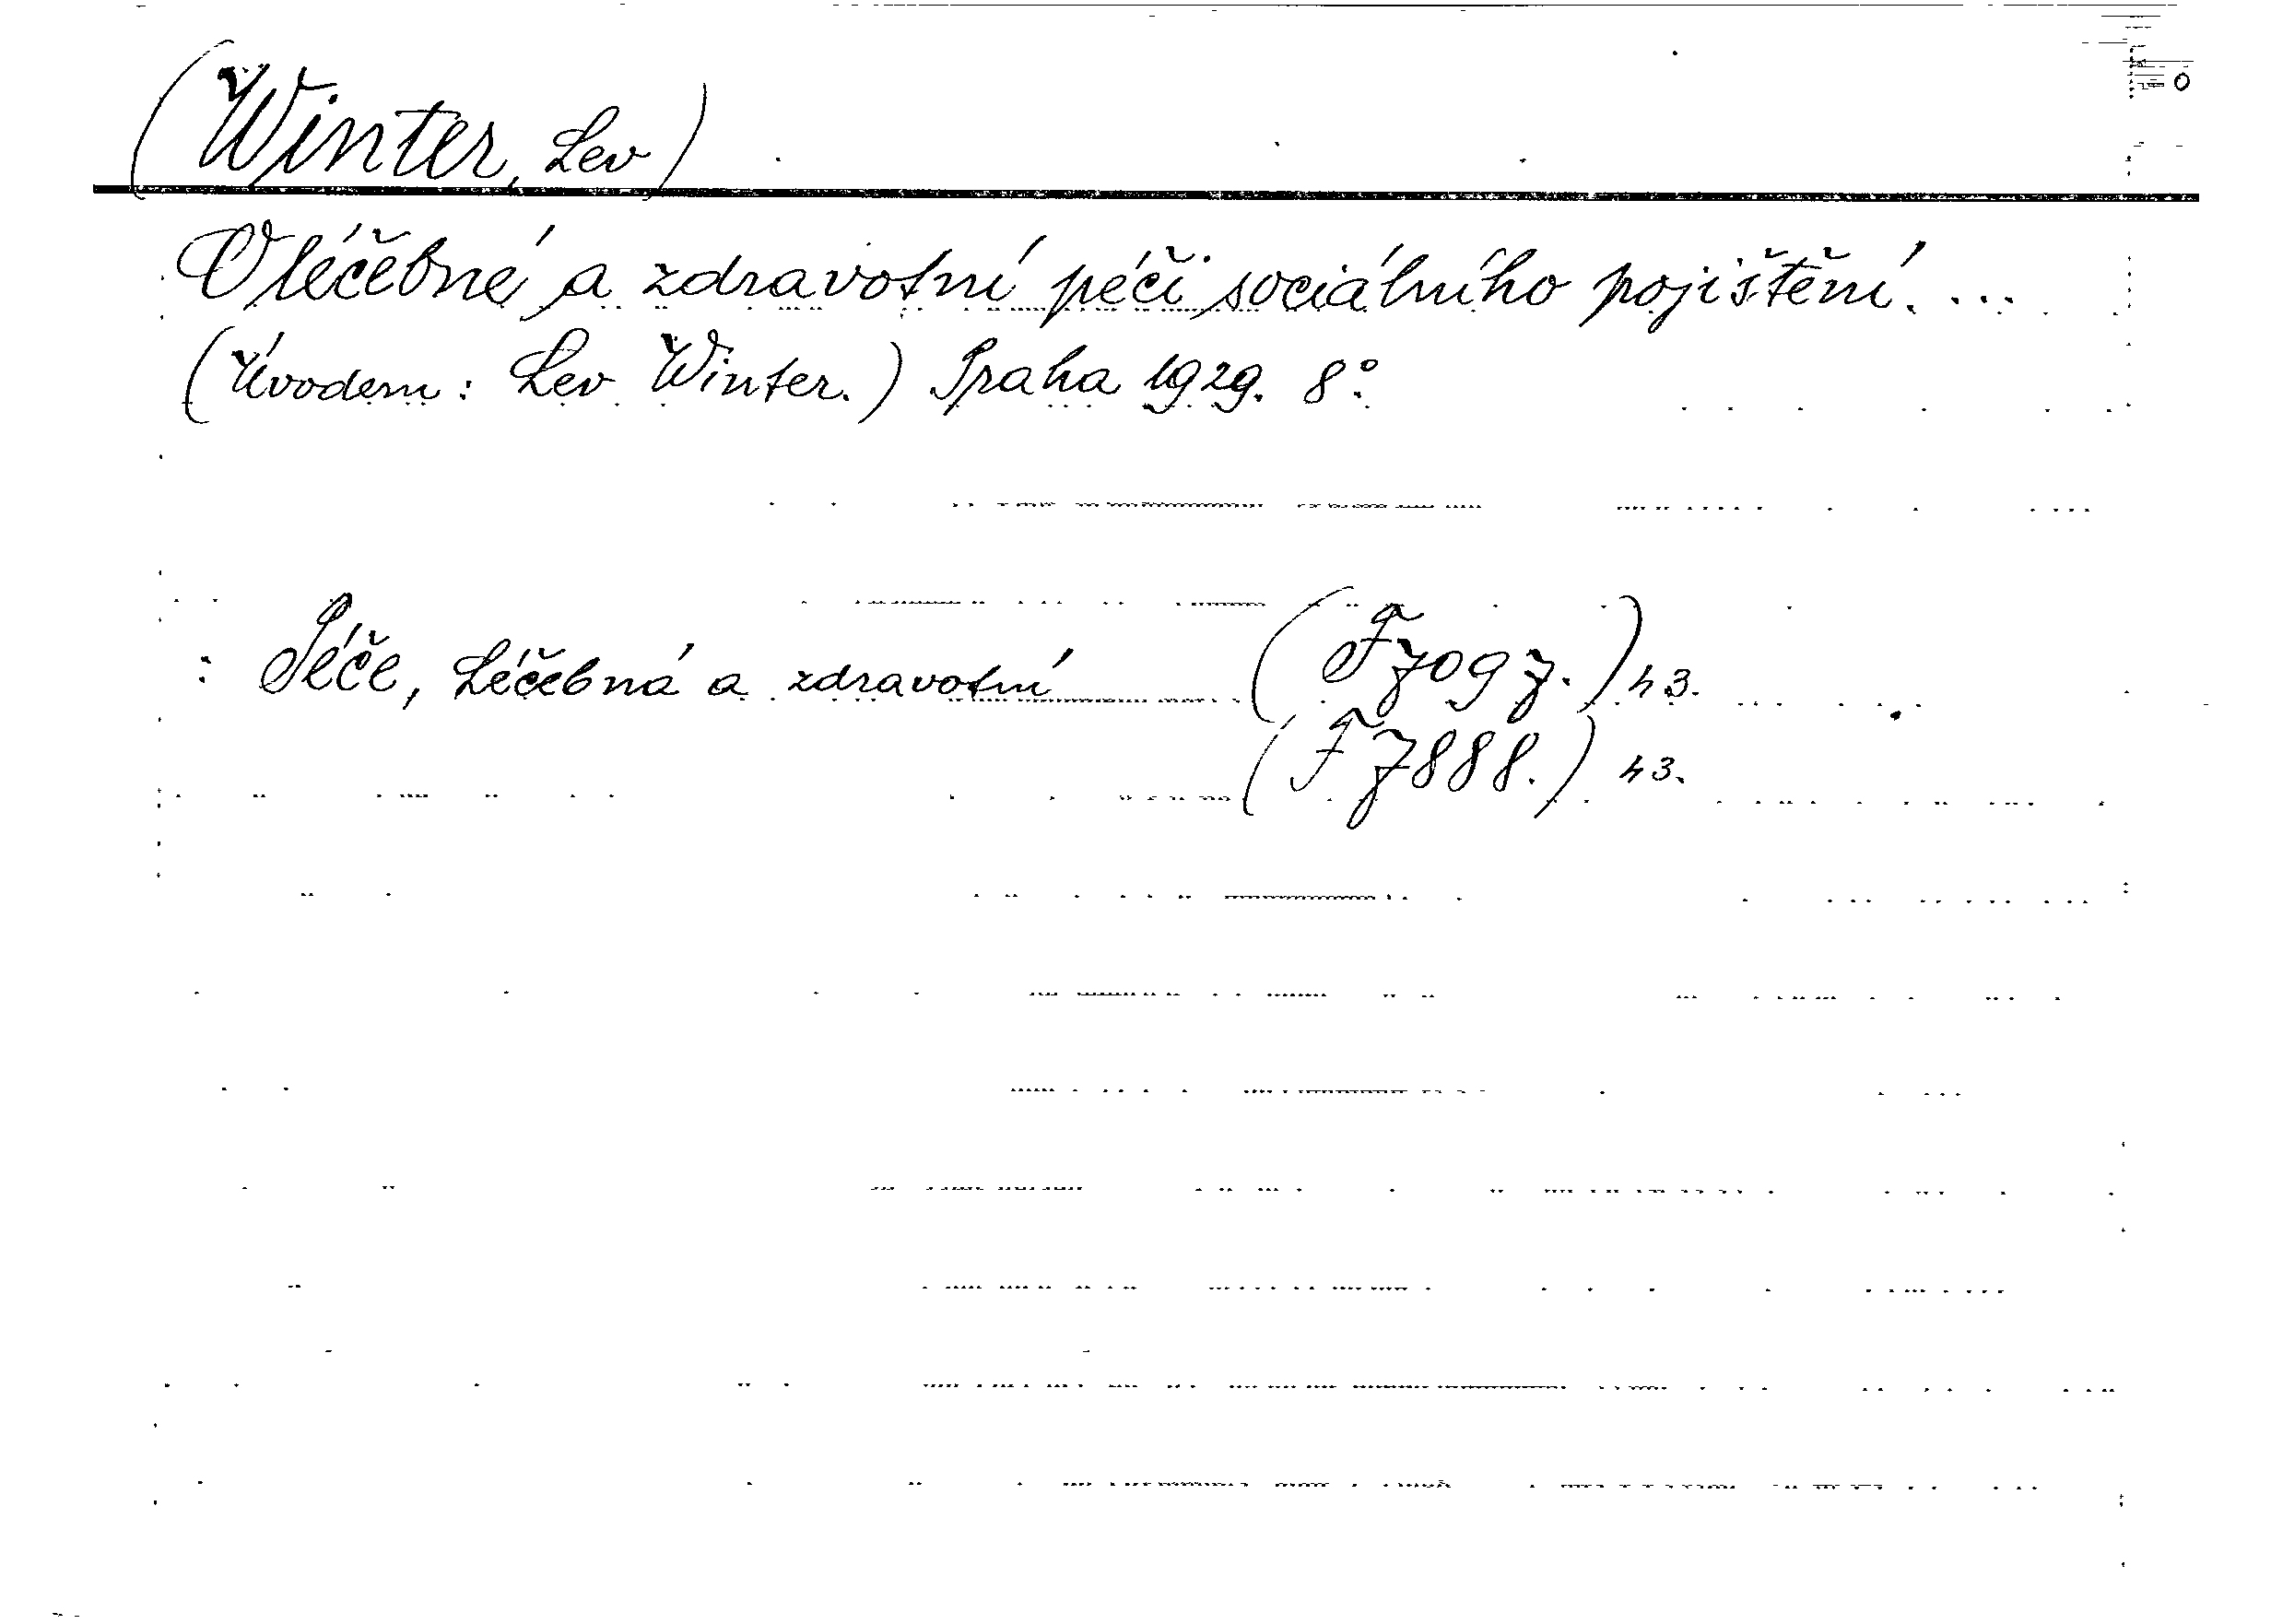 (Winter, Lev)
O léčebné a zdravotní péči sociálního pojištění. ...
(Úvodem: Lev Winter.) Praha 1929. 8°.
: Péče, Léčebná a zdravotní (F 7097.) h3.
(F 7888.) h3.